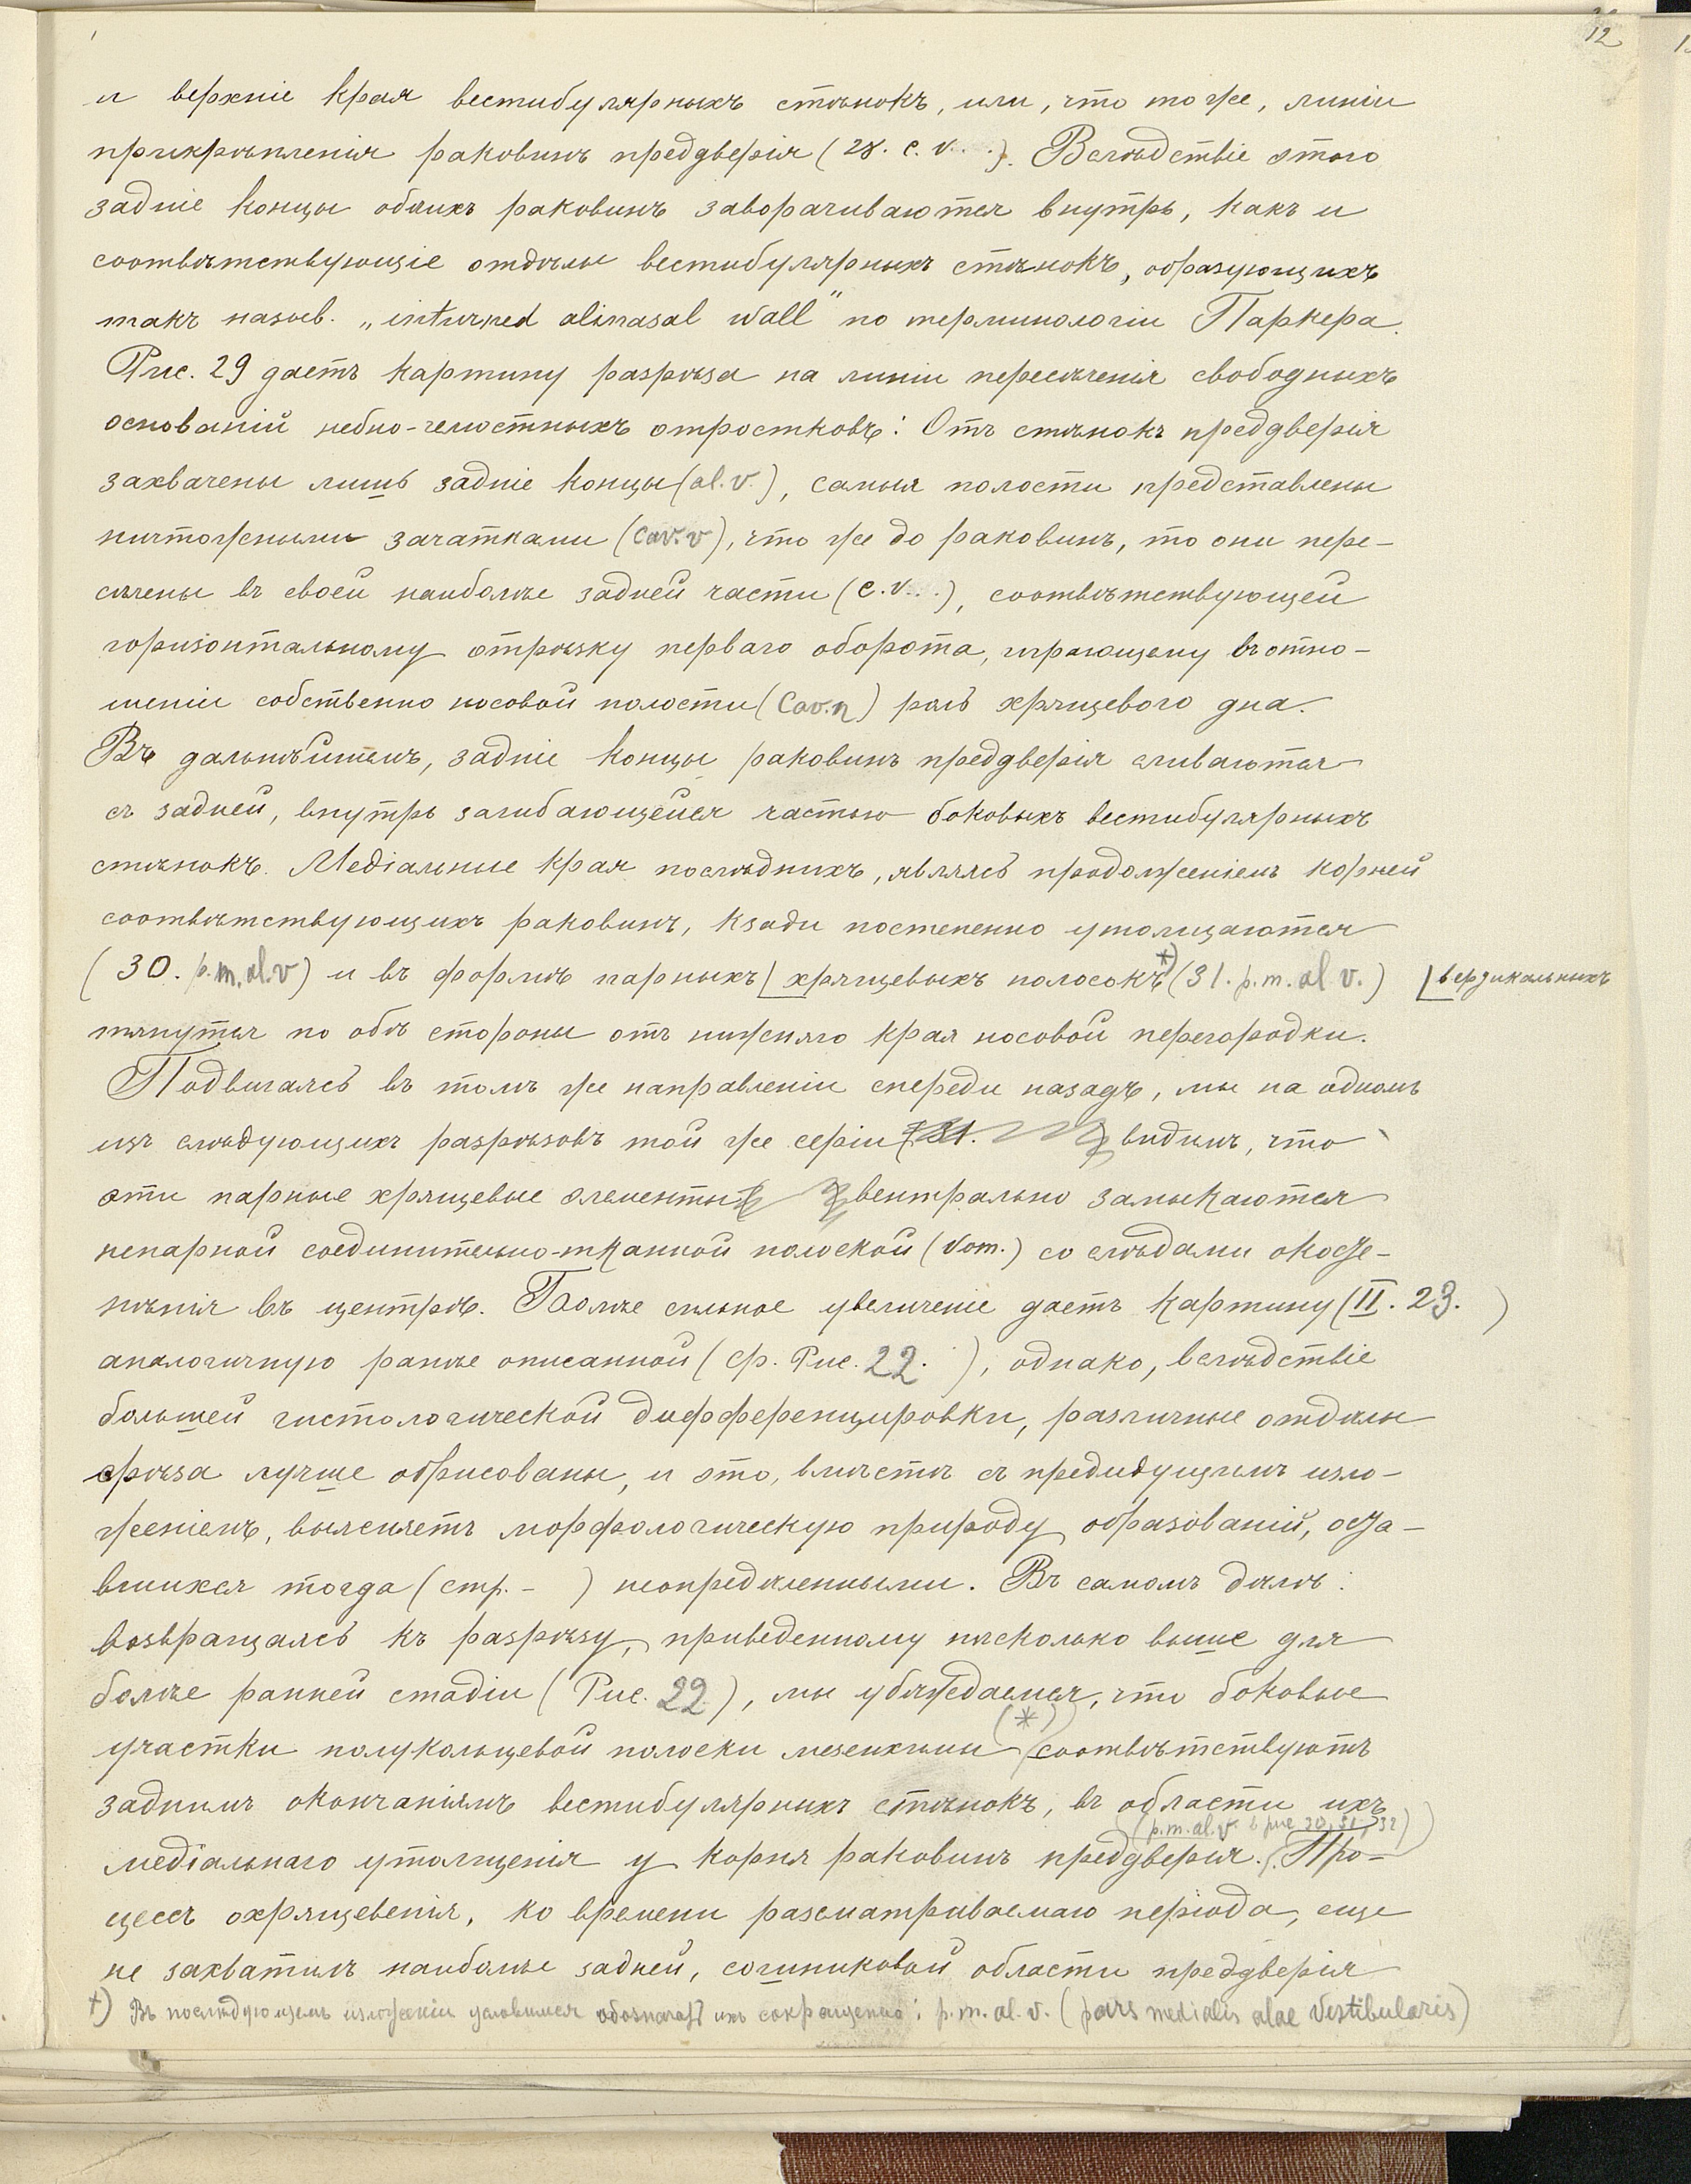 12
и верхніе края вестибулярныхъ стѣнокъ, или, что тоже, линіи
прикрѣпленія раковинъ предверія (28. c. v. .). Вслѣдствіе этого
задніе концы обѣихъ раковинъ заворачиваются внутрь, какъ и
соотвѣтствующіе отдѣлы вестибулярныхъ стѣнокъ, образующихъ
такъ назыв. „inturned alinasal wall" по терминологіи Паркера.
Рис. 29 даетъ картину разрѣза на линіи пересѣченія свободныхъ
основаній небно-челюстныхъ отростковъ: Отъ стѣнокъ предверія
захвачены лишь задніе концы (al. v.), самыя полости представлены
ничтожными зачатками (cav. v), что же до раковинъ, то они пере-
сѣчены въ своей наиболѣе задней части (c. v. .), соотвѣтствующей
горизонтальному отрѣзку перваго оборота, играющему въ отно-
шеніи собственно носовой полости (cav. n) роль хрящевого дна.
Въ дальнѣйшемъ, задніе концы раковинъ предверія сливаются
съ задней, внутрь загибающейся частью боковыхъ вестибулярныхъ
стѣнокъ. Медіальные края послѣднихъ, являясь продолженіемъ корней
соотвѣтствующихъ раковинъ, кзади постепенно утолщаются
(30. p. m. al. v) и въ формѣ парныхъ | хрящевыхъ полосокъ *) (31. p. m. al. v.) | вертикальныхъ
тянутся по обѣ стороны отъ нижняго края носовой перегородки.
Подвигаясь въ томъ же направленіи спереди назадъ, мы на одномъ
изъ слѣдующихъ разрѣзовъ той же серіи (31. ) видимъ, что
эти парные хрящевые элементы вентрально замыкаются
непарной соединительно-тканной полоской (vom.) со слѣдами окосте-
нѣнія въ центрѣ. Болѣе сильное увеличеніе даетъ картину (II. 23. )
аналогичную ранѣе описанной (ср. Рис. 22. ), однако, вслѣдствіе
большей гистологической дифференцировки, различные отдѣлы
срѣза лучше обрисованы, и это, вмѣстѣ съ предидущимъ изло-
женіемъ, выясняетъ морфологическую природу образованій, оста-
вшихся тогда (стр. - ) неопредѣленными. Въ самомъ дѣлѣ:
возвращаясь къ разрѣзу, приведенному нѣсколько выше для
болѣе ранней стадіи (Рис. 22), мы убѣждаемся, что боковые
участки полукольцевой полоски мезенхимы (*) соотвѣтствуютъ
заднимъ окончаніямъ вестибулярныхъ стѣнокъ, въ области ихъ
(p. m. al. v. в рис 30, 31, 32)
медіальнаго утолщенія у корня раковинъ предверія. Про-
цессъ охрящевенія, ко времени разсматриваемаго періода, еще
не захватилъ наиболѣе задней, сошниковой области предверія
+) Въ послѣдующемъ изложеніи условимся обозначать ихъ сокращенно: p. m. al. v. (pars medialis alae vestibularis)